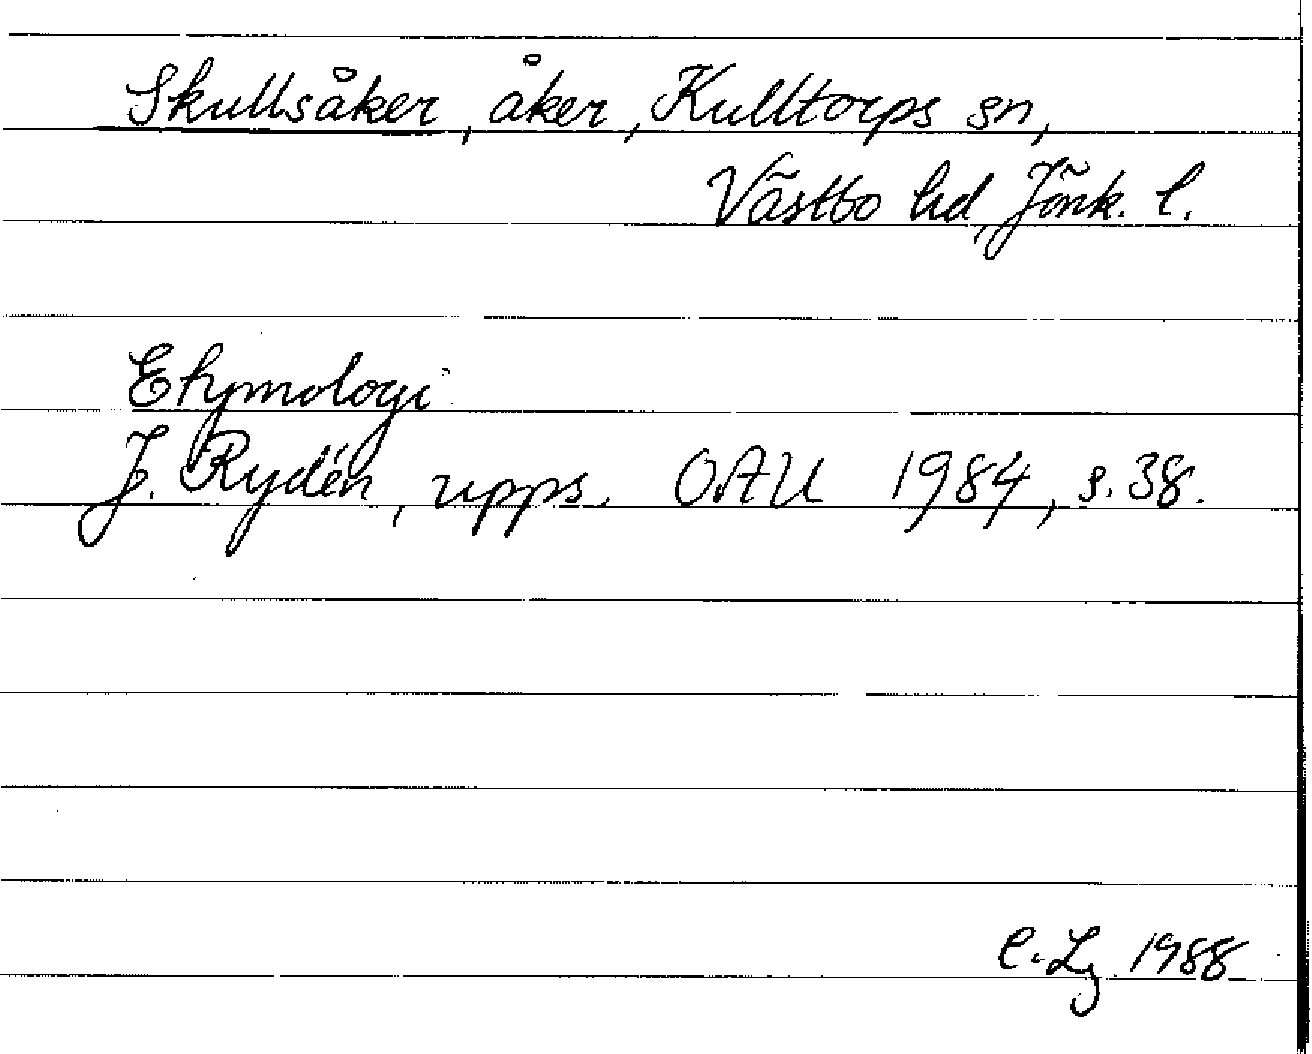 Skullsåker, åker, Kulltorps sn,
Västbo hd, Jönk. l.
Etymologi
J. Rydén, upps. OAU 1984, s. 38.
C. Lj 1988